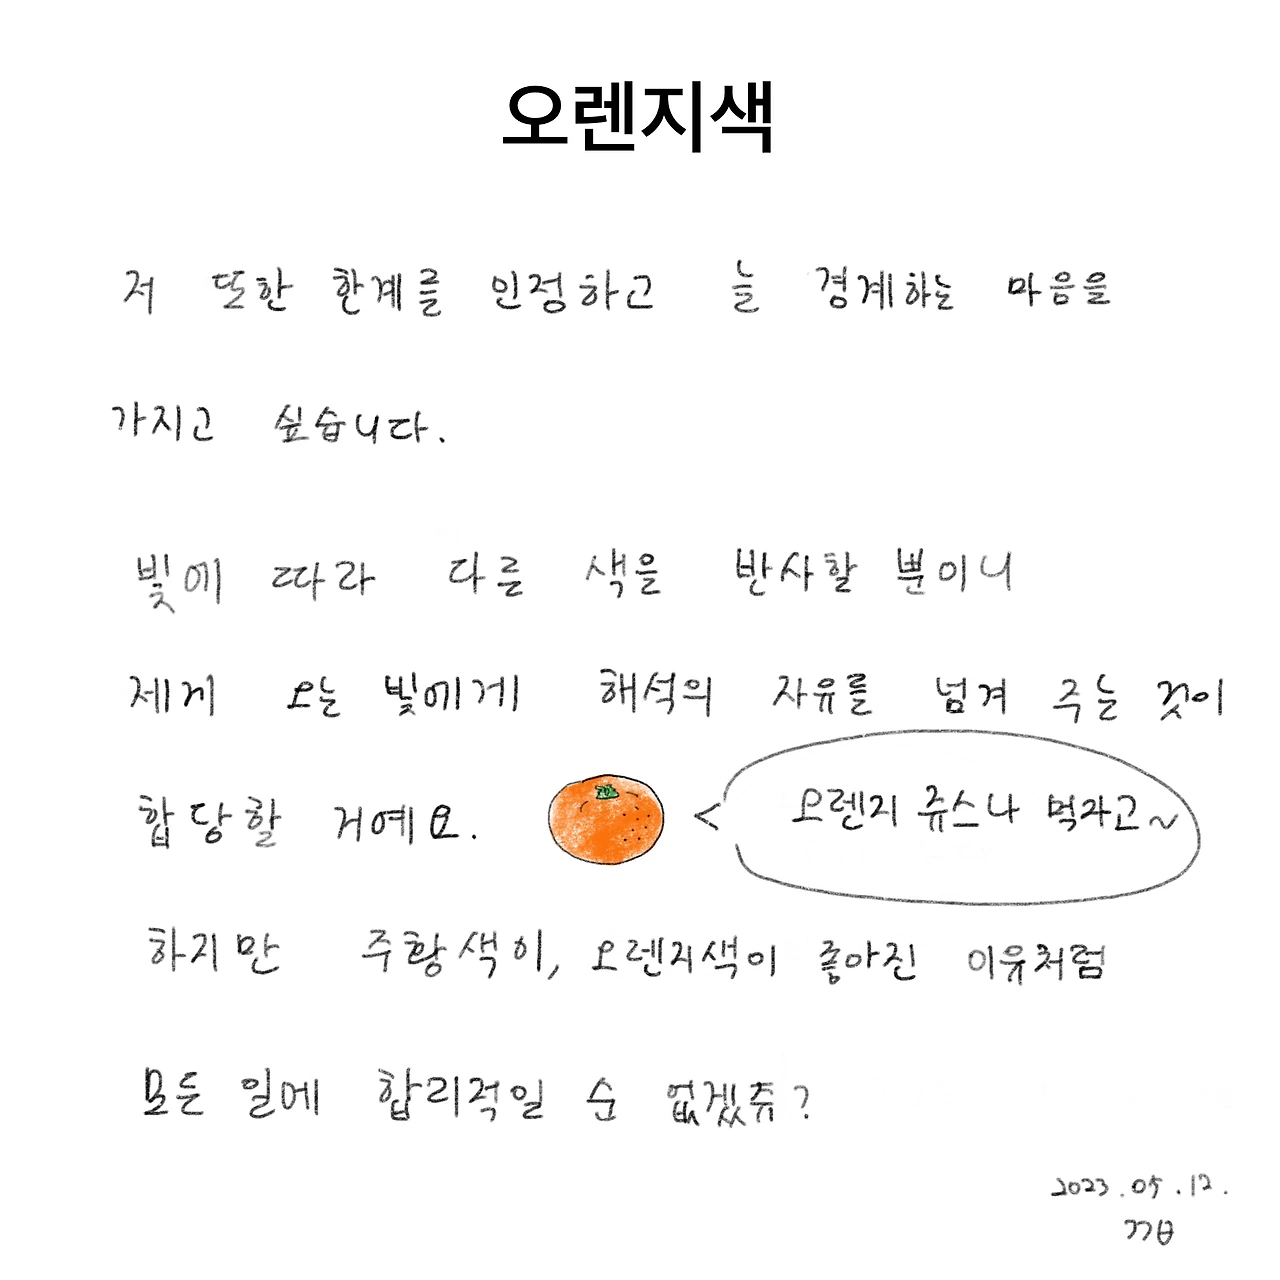 오렌지색
저 또한 한계를 인정하고 늘 경계하는 마음을
가지고 싶습니다.
빛에 따라 다른 색을 반사할 뿐이니
제게 오는 빛에게 해석의 자유를 넘겨 주는 것이
합당할 거예요.
< 오렌지 쥬스나 먹자고~
하지만 주황색이, 오렌지색이 좋아진 이유처럼
모든 일에 합리적일 순 없겠쥬?
2023.05.12.
ㄲㅂ